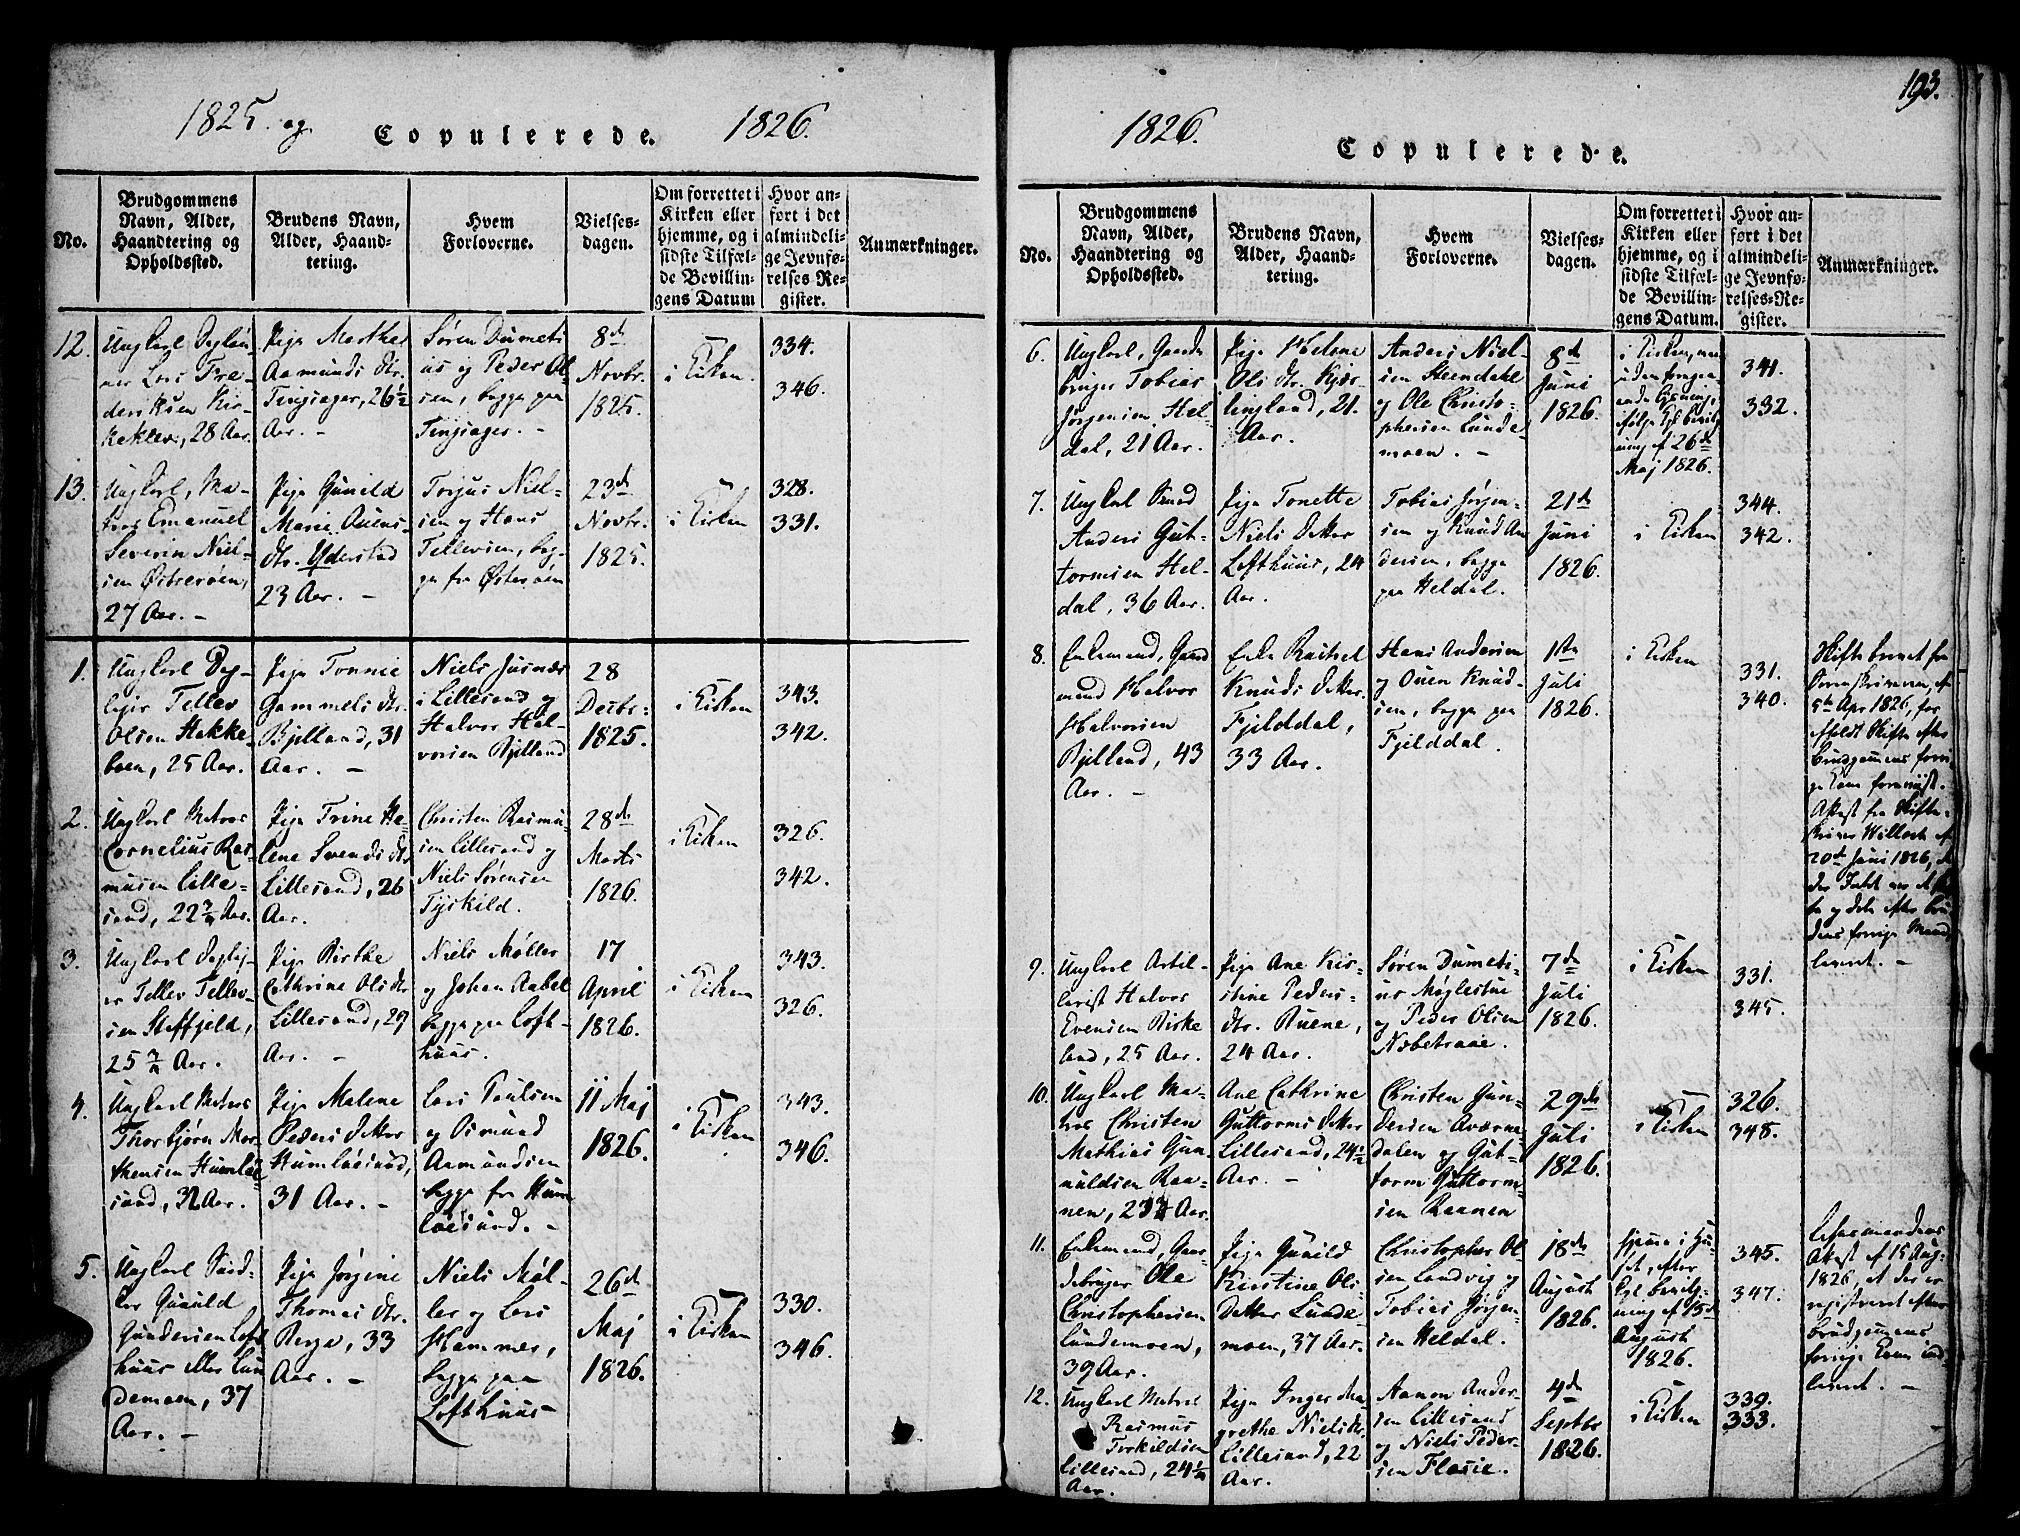 1825. og
Copulerede.
1826.
No.
Brudgommens
Navn, Alder,
Haandtering og
Opholdssted.
Brudens Navn,
Alder, Haand-
tering.
Hvem
Forloverne.
Vielses-
dagen.
Om forrettet i
Kirken eller
hjemme, og i
sidste Tilfæl-
de Bevillin-
gens Datum
Hvor an-
ført i det
almindeli-
ge Jevnfø-
relses-Re-
gister.
Anmærkninger.
12.
Ungkarl
Lars Fre-
deriksen Kir-
keklev, 28 Aar.
Pige Marthe
Aamunds dtr.
Tingsager, 26½
Aar. -
Søren Dumeti-
us og Peder Ol-
sen, begge paa
Tingsager. -
8de
Novbr.
1825.
i Kirken.
334.
346.
13.
Ungkarl, Ma-
tros Emanuel
Severin Niel-
sen Østerøen,
27 Aar. -
Pige Gunild
Marie Ouens-
dtr. Yderstad
23 Aar. -
Torjus Niel-
sen og Hans
Tellevsen, beg-
ge fra Østerøen
23de
Novbr.
1825.
i Kirken
328.
331.
1.
Ungkarl
Tellev
Olsen Hakke-
boen, 25 Aar.
Pige Tonnie
Gammels dtr.
Bjelland, 31
Aar. -
Niels Jusnæs
i Lillesand og
Halvor Hal-
vorsen Bjelland
28
Decbr.
1825.
i Kirken
343.
342.
2.
Ungkarl Matros
Cornelius Ras-
musen Lille-
sand, 22¾ Aar.
Pige Trine He-
lene Svends dtr
Lillesand, 26
Aar. -
Christen Rasmu-
sen Lillesand og
Niels Sørensen
Tyskild.
28de
Marts
1826.
i Kirken
326.
342.
3.
Ungkarl
Tellev Tellev-
sen Steffjeld,
25 ¾ Aar.
Pige Birthe
Cathrine Olsdtr
Lillesand, 29
Aar. -
Niels Møller
og Johan Aabel
begge paa Loft-
huus.
17
April
1826.
i Kirken
343.
326.
4.
Ungkarl Matros
Thorbjørn Mor-
thensen Humløe-
sund, 32 Aar.
Pige Malene
Peders datter
Humløesund,
31 Aar. -
Lars Paulsen
og Osmund
Aamundsen
begge fra Hum-
løesund. -
11 Maj
1826.
i Kirken
343.
346.
5.
Ungkarl
Gunuld
Gundersen Loft-
huus eller Lun-
demoen, 37
Aar. -
Pige Jørgine
Thomas dtr.
Berge, 33
Aar. -
Niels Møl-
ler og Lars
Hammer,
begge paa
Lofthuus -
26de
Maj
1826.
i Kirken
330.
346.
193.
1826.
Copulerede.
No.
Brudgommens
Navn, Alder,
Haandtering og
Opholdssted.
Brudens Navn,
Alder, Haand-
tering.
Hvem
Forloverne.
Vielses-
dagen.
Om forrettet i
Kirken eller
hjemme, og i
sidste Tilfæl-
de Bevillin-
gens Datum.
Hvor an-
ført i det
almindeli-
ge Jevnfø-
relses-Re-
gister.
Anmærkninger.
6.
Ungkarl, Gaard-
bruger Tobias
Jørgensen Hel-
dal, 21 Aar.
Pige Helene
Ols dtr. Kjær-
lingland, 21.
Aar.
Anders Niel-
sen Steendahl
og Ole Christo-
phersen Lunde-
moen. -
8de
Juni
1826.
i Kirken, men
uden foregaa-
ende
26de
Maj 1826.
341.
332.
7.
Ungkarl
Anders Gut-
tormsen Hel-
dal, 36 Aar.
Pige Tonette
Niels datter
Lofthuus, 24
Aar.
Tobias Jørgen-
sen og Knud An-
dersen, begge
paa Heldal.
21de
Juni
1826.
i Kirken
344.
342.
8.
Enkemand, Gaard-
mand Halvor
Halvorsen
Bjelland, 43
Aar. -
Enke Rachel
Knuds datter
Fjelddal,
33 Aar.
Hans Andersen
og Ouen Knud-
sen, begge paa
Fjelddal.
1ste
Juli
1826.
i Kirken
331.
340.
5te Apr 1826, for
afholdt Skifte efter
Brudgommens forri-
ge Kone
Attest fra Skifte-
20de Juni 1826,
efter Bru-
dens forrige Mand
levert. -
9.
Ungkarl Artil-
lerist Halvor
Evensen Birke-
land, 25 Aar.
Pige Ane Kir-
stine Peders-
dtr. Ruene,
24 Aar.
Søren Dumeti-
us Møglestue
og Peder Olsen
Næbetraae.
7de
Juli
1826.
i Kirken
331.
345.
10.
Ungkarl Ma-
tros Christen
Mathias Gun-
uldsen Raa-
nen, 23¾ Aar.
Ane Cathrine
Guttorms datter
Lillesand, 24½
Aar. -
Christen Gun-
dersen Aværne-
dalen og Gut-
torm Guttorm-
sen Raanen
29de
Juli
1826.
i Kirken
326.
348.
11.
Enkemand, Gaar-
debruger Ole
Christophersen
Lundemoen,
39 Aar.
Pige Gunild
Kirstine Ols
Datter Lunde-
moen, 37 Aar.
Christopher Ol-
sen Landvig og
Tobias Jørgen-
sen Heldal.
18de
August
1826.
hjemme i Hu-
set, efter
Kgl. bevilg-
ning af 15de
August
1826.
345.
347.
Lehnsmandens
Attest af 15 Aug.
1826, at der er
registreret efter
Brudgommens
forrige Kone ind-
levert. -
12.
Ungkarl Matros
Rasmus
Torkildsen
Lillesand, 24¼
Aar.
Pige Inger Ma-
grethe Nielsdtr.
Lillesand, 22
Aar.
Aanon Ander-
sen Lillesand
og Niels Peder-
sen Flosie.
4de
Septbr
1826.
i Kirken
339.
333.